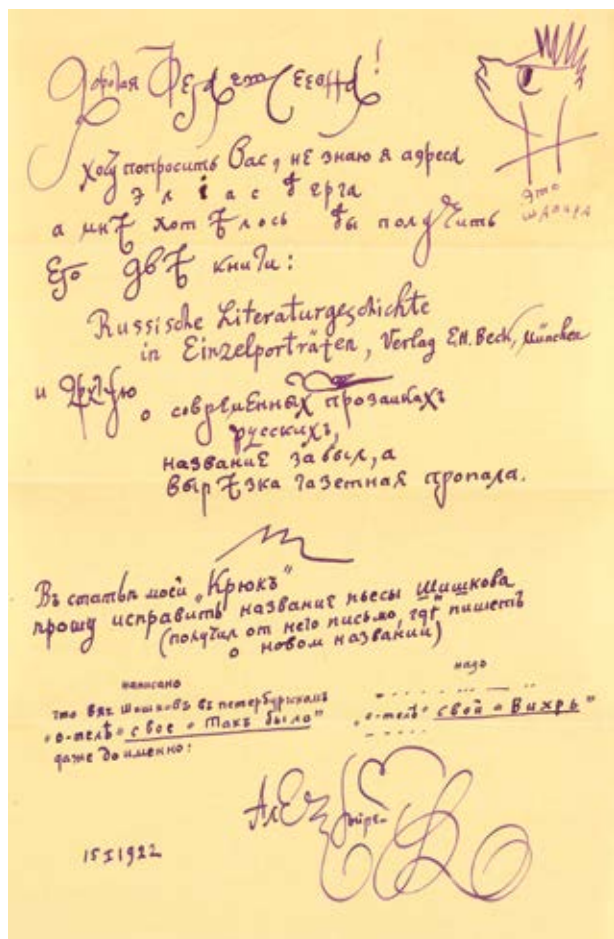 Дорогая Фега Евсеевна!
это
хочу попросить Вас, не знаю я адреса
Эліасберга
а мнѣ хотѣлось бы получить
Его двѣ книги:
Russische Literaturgeschichte
in Einzelporträten, Verlag C.H. Beck, München
и другую
о современных прозаикахъ
русскихъ,
название забыл, а
вырѣзка газетная пропала.
Въ статьѣ моей „Крюкъ"
прошу исправить название пьесы Шишкова
(получил от него письмо, где пишетъ
о новом названии)
написано
что Вяч Шишковъ въ петербурскомъ
„о-телѣ" свое „Такъ было"
даже до именно:
надъ
„о-телѣ" свой „Вихрь"
15 I 1922